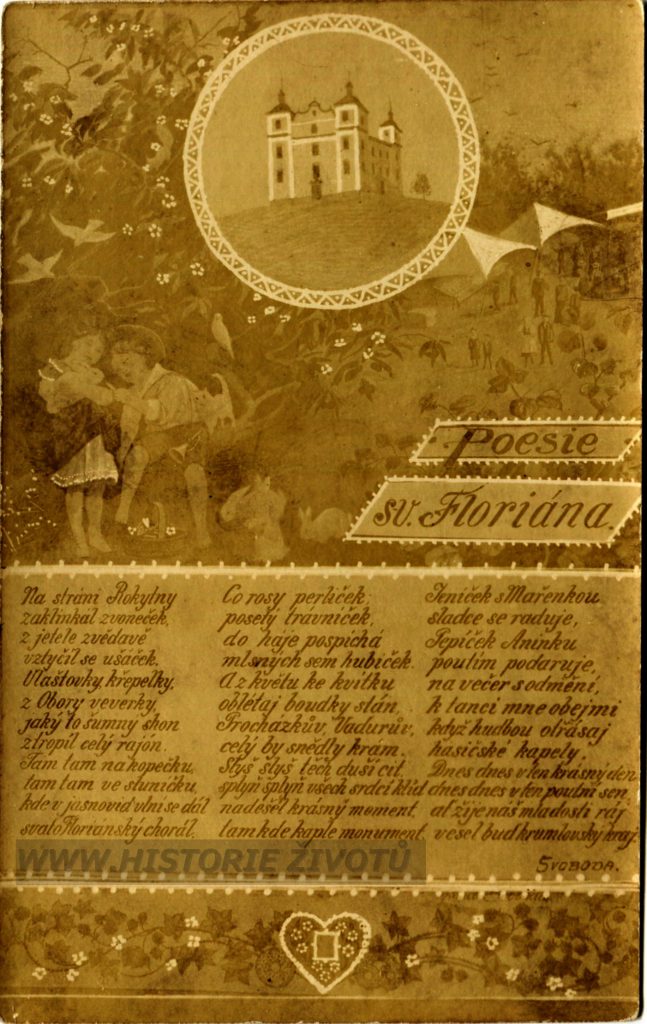 Poesie
sv. Floriána.
Na stráni Rokytny
zaklinkal zvoneček,
z jetele zvědavě
vztyčil se ušáček.
Vlaštovky, křepelky,
z Obory veverky,
jaký to šumný shon
ztropil celý rajón.
Tam tam na kopečku,
tam tam ve sluníčku,
kde v jasno vid vlní se dál
svatoFlorianský chorál.
Co rosy perliček,
posetý trávníček,
do háje pospíchá
mlsných sem hubiček.
A z květu ke kvítku
oblétaj boudky, stán,
Procházkův, Vadurův,
celý by snědly krám.
Slyš slyš těch duší cit,
splyň splyň všech srdcí klid
nadešel krásný moment,
tam kde kaple monument,
Jeníček s Mařenkou
sladce se raduje,
Pepíček Aninku
poutím podaruje,
na večer s odmění,
k tanci mne obejmi
když hudbou otřásaj
hasičské kapely.
Dnes dnes v ten krásný den
dnes dnes v ten poutní sen,
ať žije náš mladosti ráj
vesel buď krumlovský kraj.
Svoboda.
WWW.HISTORIE ŽIVOTŮ